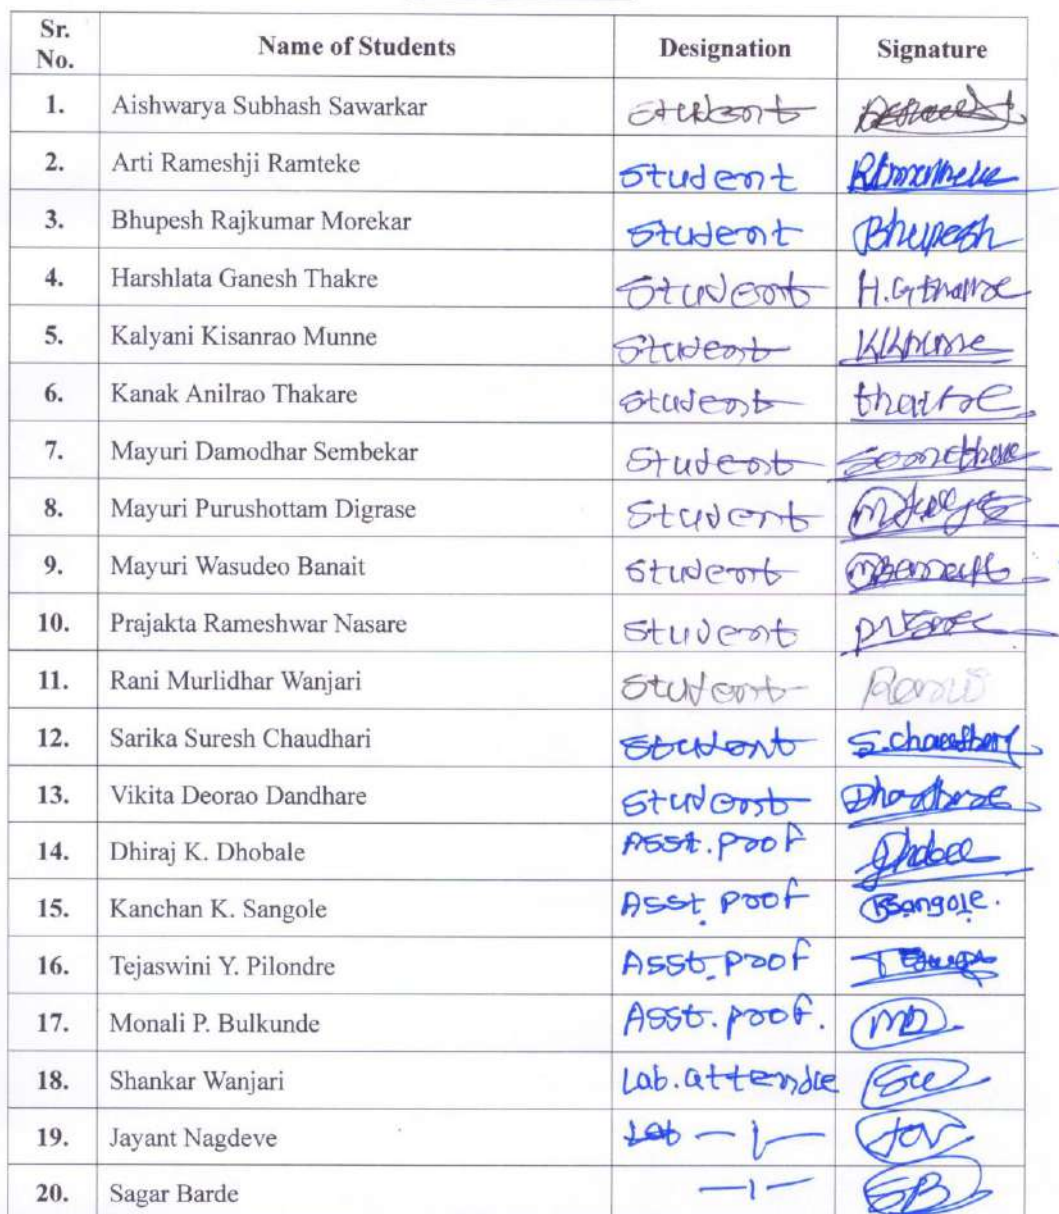 Sr. No. Name of Students Designation Signature
1. Aishwarya Subhash Sawarkar Student
2. Arti Rameshji Ramteke Student
3. Bhupesh Rajkumar Morekar Student Bhupesh
4. Harshlata Ganesh Thakre Student
5. Kalyani Kisanrao Munne Student
6. Kanak Anilrao Thakare Student
7. Mayuri Damodhar Sembekar Student
8. Mayuri Purushottam Digrase Student
9. Mayuri Wasudeo Banait Student
10. Prajakta Rameshwar Nasare Student
11. Rani Murlidhar Wanjari Student
12. Sarika Suresh Chaudhari Student
13. Vikita Deorao Dandhare Student
14. Dhiraj K. Dhobale Asst. Prof
15. Kanchan K. Sangole Asst. Prof Sangole.
16. Tejaswini Y. Pilondre Asst. Prof
17. Monali P. Bulkunde Asst. prof.
18. Shankar Wanjari Lab. attendce
19. Jayant Nagdeve —1—
20. Sagar Barde —1— SB